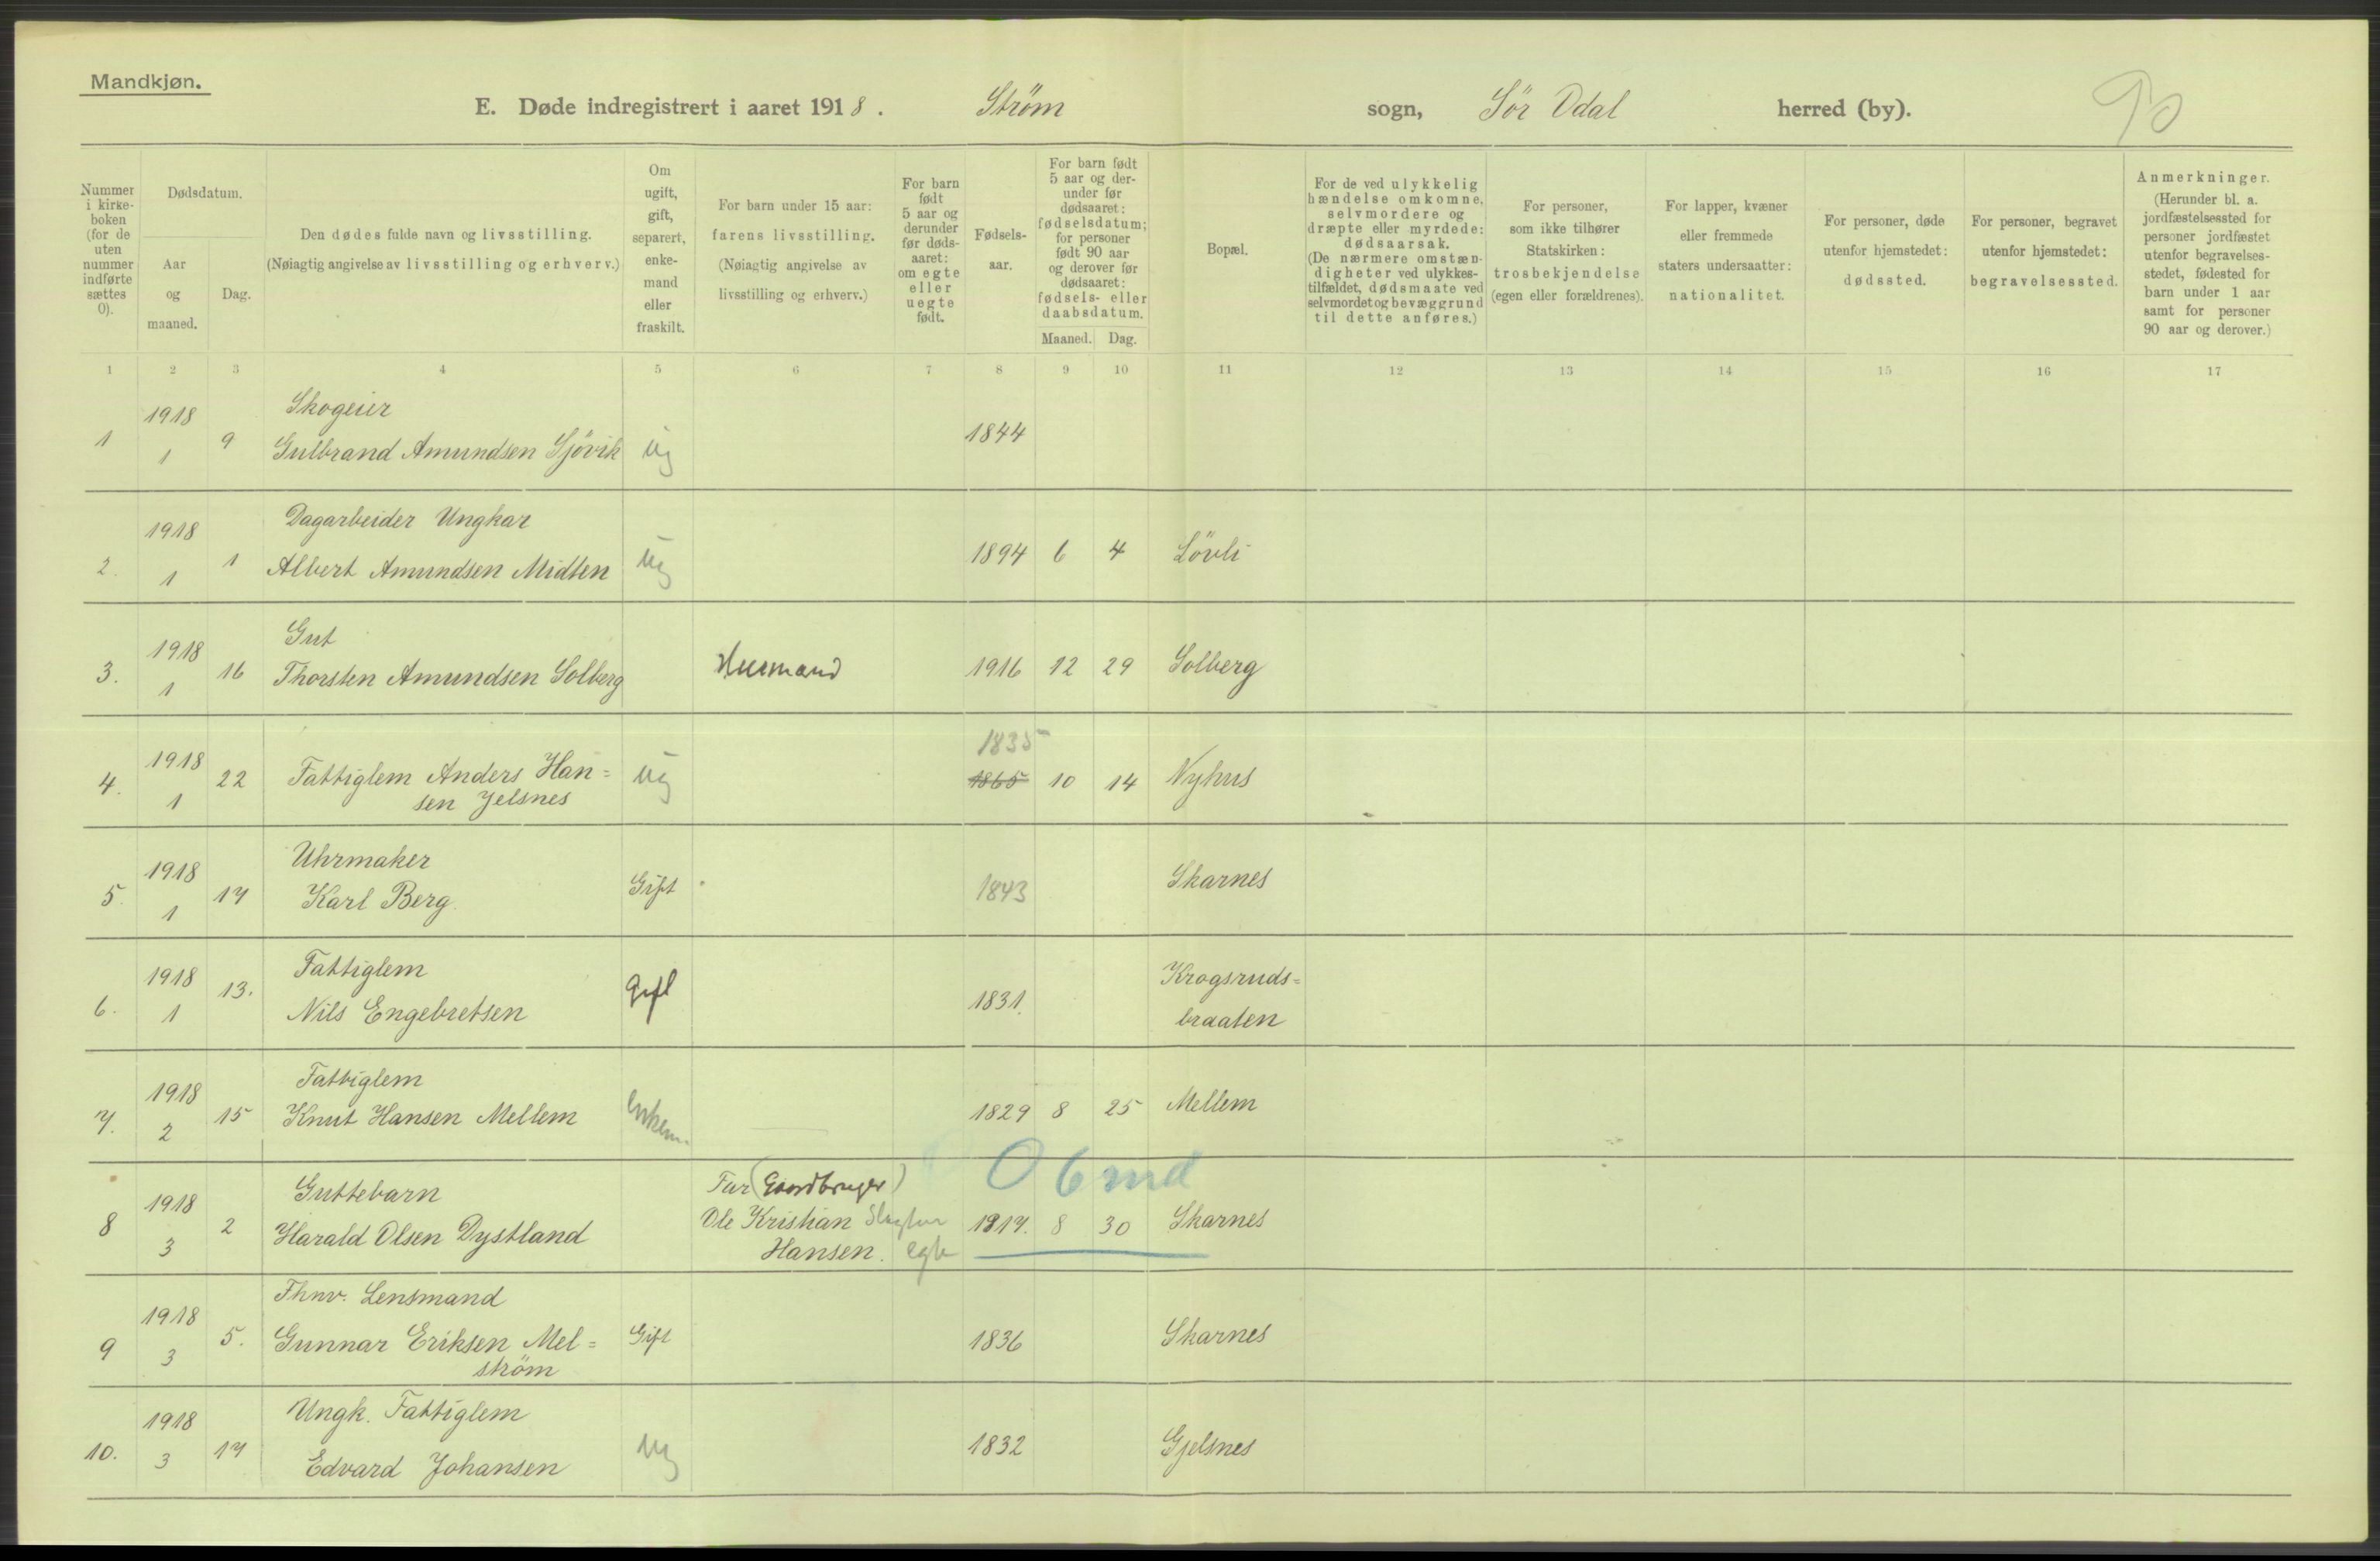 Mandkjøn.
E. Døde indregistrert i aaret 1918. Strøm sogn, Sör Odal herred (by).
90
Nummer i kirkeboken (for de uten nummer indførte sættes 0).
Dødsdatum.
Aar og maaned.
Dag.
Den dødes fulde navn og livsstilling.
(Nøiagtig angivelse av livsstilling og erhverv.)
Om ugift, gift, separert, enkemand eller fraskilt.
For barn under 15 aar: farens livsstilling. (Nøiagtig angivelse av livsstilling og erhverv.)
For barn født 5 aar og derunder før dødsaaret: om egte eller uegte født.
Fødselsaar.
For barn født 5 aar og derunder før dødsaaret: fødselsdatum; for personer født 90 aar og derover før dødsaaret: fødsels- eller daabsdatum.
Maaned. Dag.
Bopæl.
For de ved ulykkelig hændelse omkomne, selvmordere og dræpte eller myrdede: dødsaarsak. (De nærmere omstændigheter ved ulykkestilfældet, dødsmaate ved selvmordet og bevæggrund til dette anføres.)
For personer, som ikke tilhører Statskirken: trosbekjendelse (egen eller forældrenes).
For lapper, kvæner eller fremmede staters undersaatter: nationalitet.
For personer, døde utenfor hjemstedet: dødssted.
For personer, begravet utenfor hjemstedet: begravelsessted.
Anmerkninger. (Herunder bl. a. jordfæstelsessted for personer jordfæstet utenfor begravelsesstedet, fødested for barn under 1 aar samt for personer 90 aar og derover.)
1 2 3 4 5 6 7 8 9 10 11 12 13 14 15 16 17
1918 Skogeier
1 1 9 Gulbrand Amundsen Sjövik ug 1844
1918 Dagarbeider Ungkar
2. 1 1 Albert Amundsen Midten ug 1894 6 4 Lövli
1918 Gut
3. 1 16 Thorsten Amundsen Solberg Husmand 1916 12 29 Solberg
1918 1835
4. 1 22 Fattiglem Anders Han= ug 1865 10 14 Nyhus
sen Jelsnes
1918 Uhrmaker
5. 1 17 Karl Berg. Gift 1843 Skarnes
1918 Fattiglem Krogsruds=
6. 1 13. Nils Engebretsen Gift 1831. braaten
1918 Fattiglem
7. 2 15 Knut Hansen Mellem Enkem. 1829 8 25 Mellem
1918 Guttebarn Far (Gaardbruger) 0 6 md
8 3 2 Harald Olsen Dystland Ole Kristian Slagter 1917. 8 30 Skarnes
Hansen. egte
1918 Fhnv. Lensmand
9 3 5. Gunnar Eriksen Mel= Gift 1836 Skarnes
ström
1918 Ungk. Fattiglem
10. 3 17 Edvard Johansen ug 1832 Gjelsnes